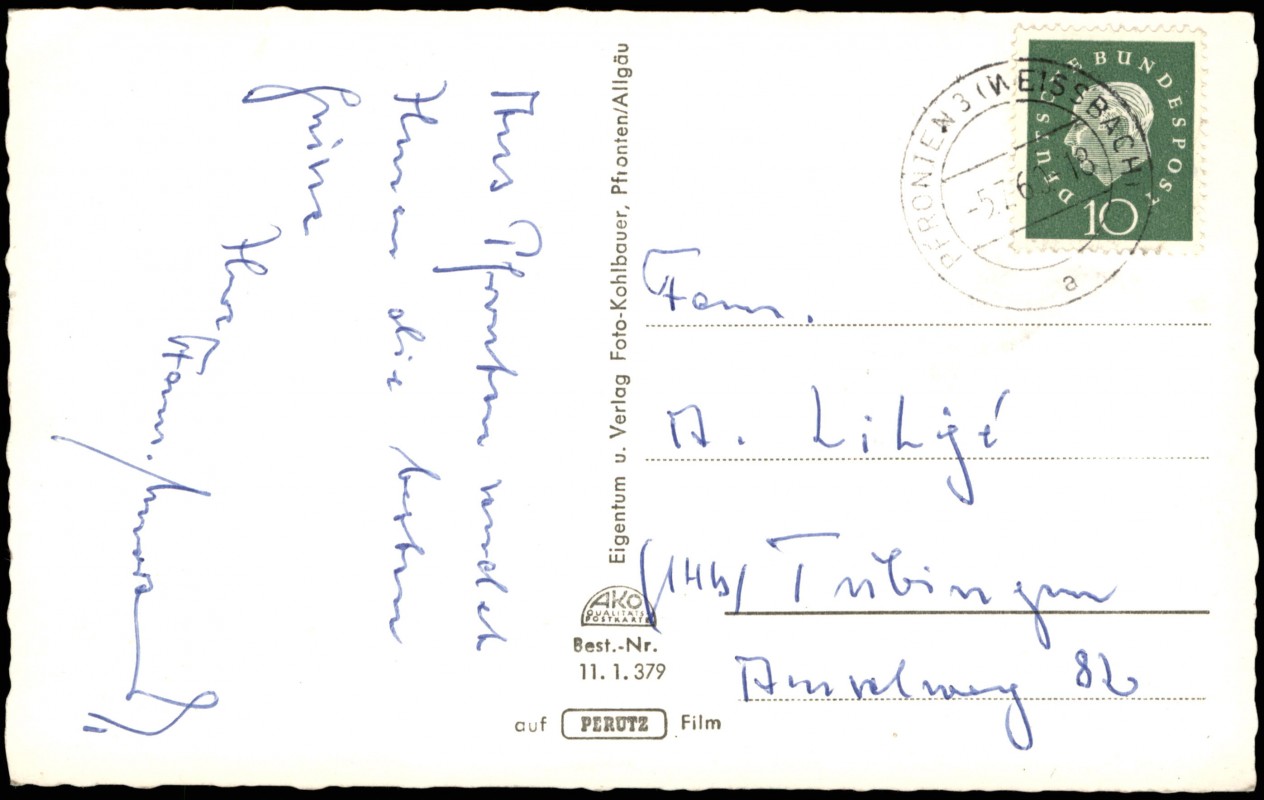 Aus Pfronten sendet
Ihnen die besten
Grüsse
Ihre
Fam.
Eigentum u. Verlag Foto-Kohlbauer, Pfronten/Allgäu
AKO
QUALITÄTS
POSTKARTE
Best.-Nr.
11.1.379
auf PERUTZ Film
DEUTSCHE BUNDESPOST
10
PFRONTEN 3 (WEISSBACH)
a
Fam.
A. Liligé
(14b) Tübingen
Amselweg 82